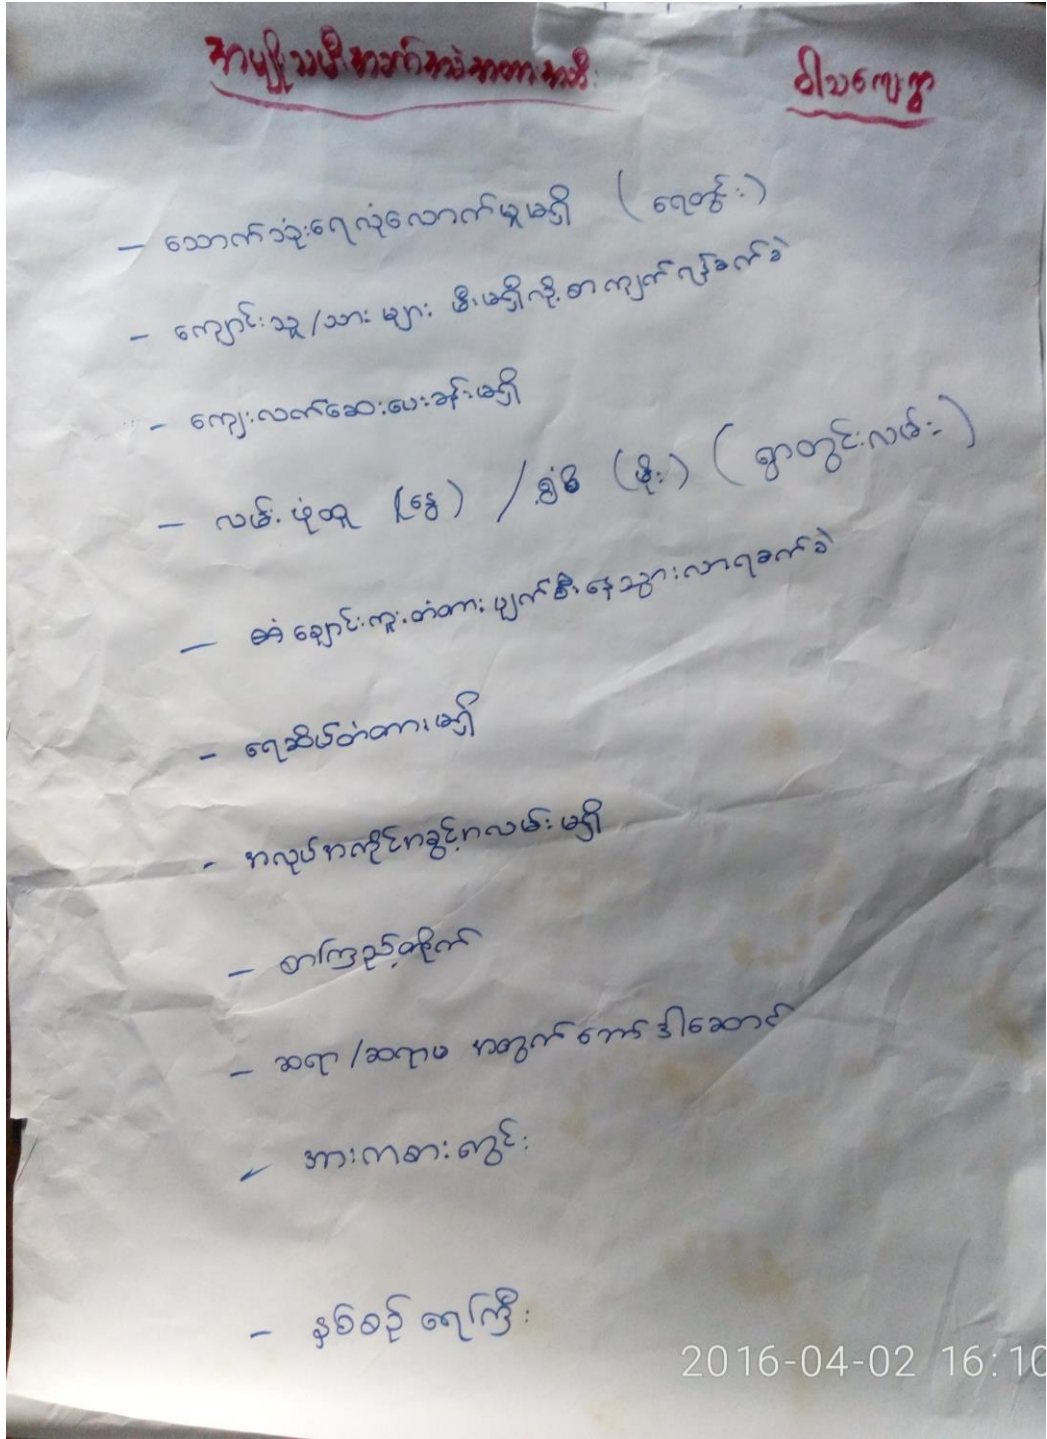 အမျိုးသမီး ဝါသကျေးရွာ
– သောက်သုံးရေလုံလောက်မှုမရှိ (ရေတွင်း)
– ကျောင်းသူ/သား များ မီးမရှိလို့ စာကျက်ရန်ခက်ခဲ
– ကျေးလက်ဆေးပေးခန်းမရှိ
– လမ်း ဖုံထူ (နွေ) / ရွှံ့ (မိုး) (ရွာတွင်းလမ်း)
– ချောင်းကူးတံတား ပျက်စီးနေသွားလာရခက်ခဲ
– ရေဆိပ်တံတားမရှိ
– အလုပ်အကိုင်အခွင့်အလမ်းမရှိ
– စာကြည့်တိုက်
– ဆရာ/ဆရာမ အတွက် ဘော်ဒါဆောင်
– အားကစားကွင်း
– နှစ်စဉ် ရေကြီး
2016-04-02 16:10